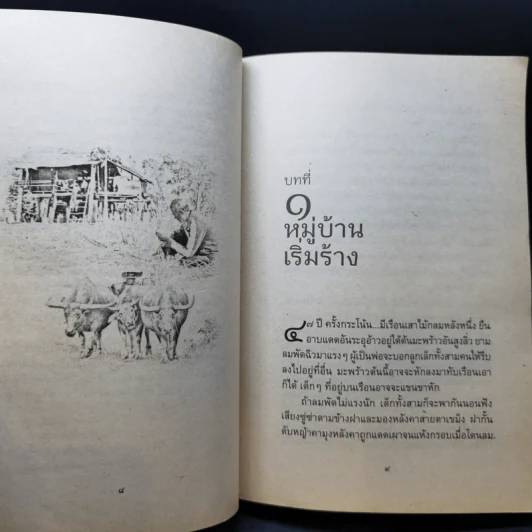 ๘
บทที่
๑
หมู่บ้าน
เริ่มร้าง
๔๗ ปี ครั้งกระโน้น...มีเรือนเสาไม้กลมหลังหนึ่ง ยืน
อาบแดดอันระอุอ้าวอยู่ใต้ต้นมะพร้าวอันสูงลิ่ว ยาม
ลมพัดฉิวมาแรงๆ ผู้เป็นพ่อจะบอกลูกเด็กทั้งสามคนให้รีบ
ลงไปอยู่ที่อื่น มะพร้าวต้นนี้อาจจะหักลงมาทับเรือนเอา
ก็ได้ เด็กๆ ที่อยู่บนเรือนอาจจะแขนขาหัก
ถ้าลมพัดไม่แรงนัก เด็กทั้งสามก็จะพากันนอนฟัง
เสียงซู่ซ่าตามข้างฝาและมองหลังคาส่ายตาเขม็ง ฝากั้น
ตับหญ้าคามุงหลังคาถูกแดดเผาจนแห้งกรอบเมื่อโดนลม
๙